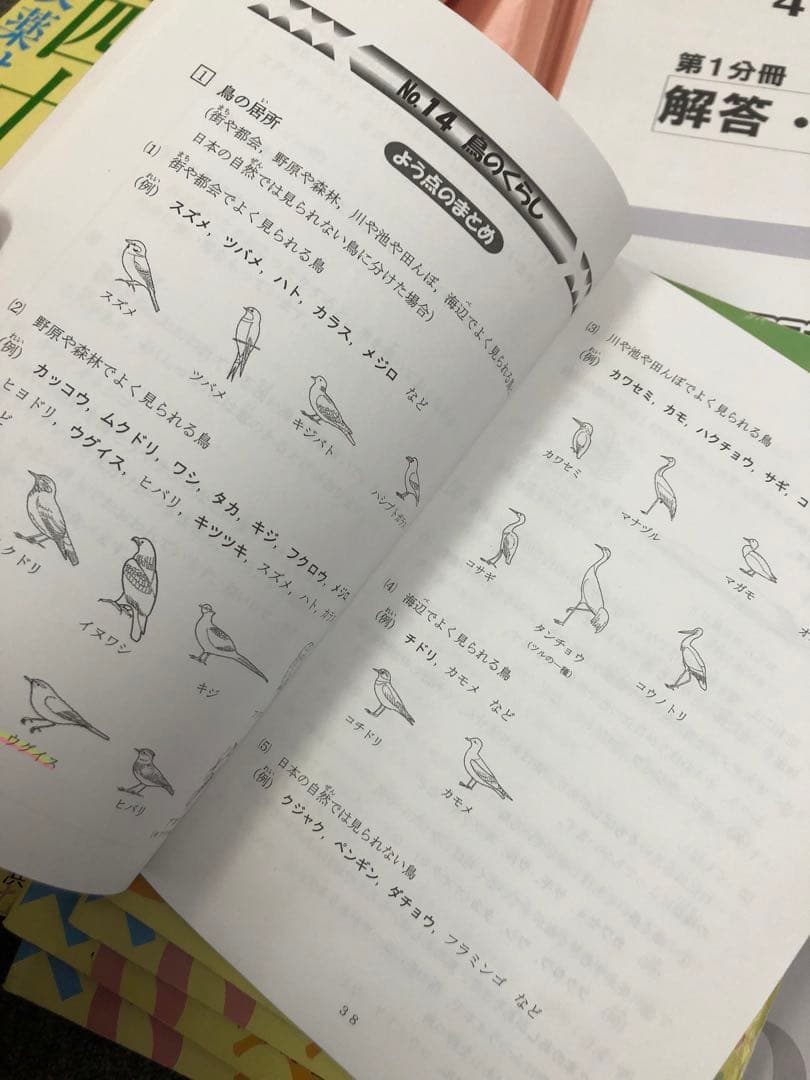 四
第1分冊
解答・
4
No.14 鳥のくらし
よう点のまとめ
1 鳥の居所
(街や都会，野原や森林，川や池や田んぼ，海辺でよく見られる鳥，
日本の自然では見られない鳥に分けた場合)
(1) 街や都会でよく見られる鳥
(例) スズメ，ツバメ，ハト，カラス，メジロ など
スズメ
ツバメ
キジバト
(2) 野原や森林でよく見られる鳥
(例) カッコウ，ムクドリ，ワシ，タカ，キジ，フクロウ，メジロ
ヒヨドリ，ウグイス，ヒバリ，キツツキ，スズメ，ハト，
クドリ
イヌワシ
キジ
ウグイス
ヒバリ
(3) 川や池や田んぼでよく見られる鳥
(例) カワセミ，カモ，ハクチョウ，サギ，コ
カワセミ
マナヅル
マガモ
コサギ
タンチョウ
(ツルの一種)
コウノトリ
(4) 海辺でよく見られる鳥
(例) チドリ，カモメ など
コチドリ
カモメ
(5) 日本の自然では見られない鳥
(例) クジャク，ペンギン，ダチョウ，フラミンゴ など
38